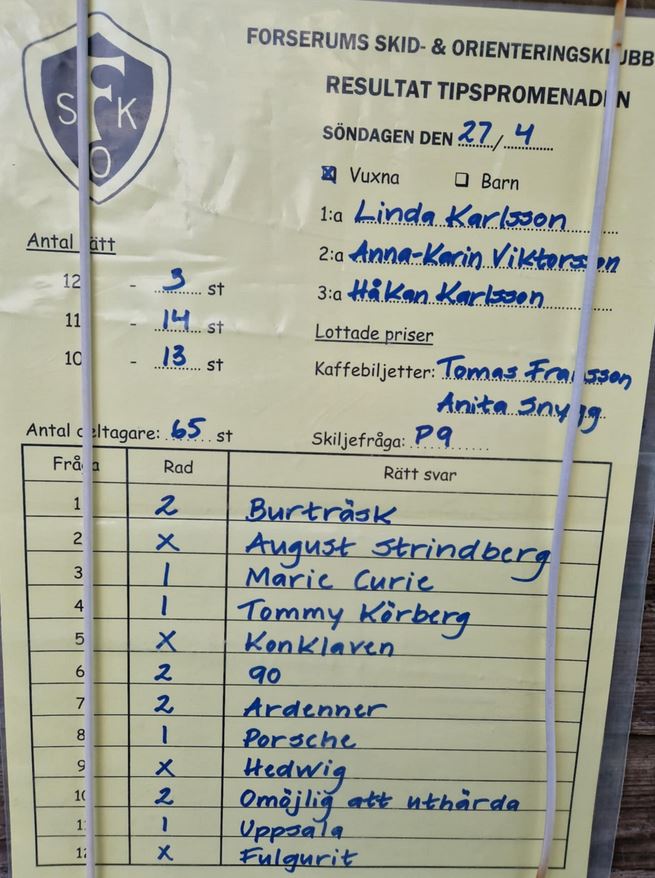 SFKO
FORSERUMS SKID- & ORIENTERINGSKLUBB
RESULTAT TIPSPROMENADEN
SÖNDAGEN DEN 27/4
☒ Vuxna ☐ Barn
1:a Linda Karlsson
2:a Anna-Karin Viktorsson
3:a Håkan Karlsson
Antal rätt
12 - 3 st
11 - 14 st
10 - 13 st
Lottade priser
Kaffebiljetter: Tomas Fransson
Anita Snygg
Antal deltagare: 65 st
Skiljefråga: P9
Fråga Rad Rätt svar
1 2 Burträsk
2 X August Strindberg
3 1 Marie Curie
4 1 Tommy Körberg
5 X Konklaven
6 2 90
7 2 Ardenner
8 1 Porsche
9 X Hedwig
10 2 Omöjlig att uthärda
11 1 Uppsala
12 X Fulgurit